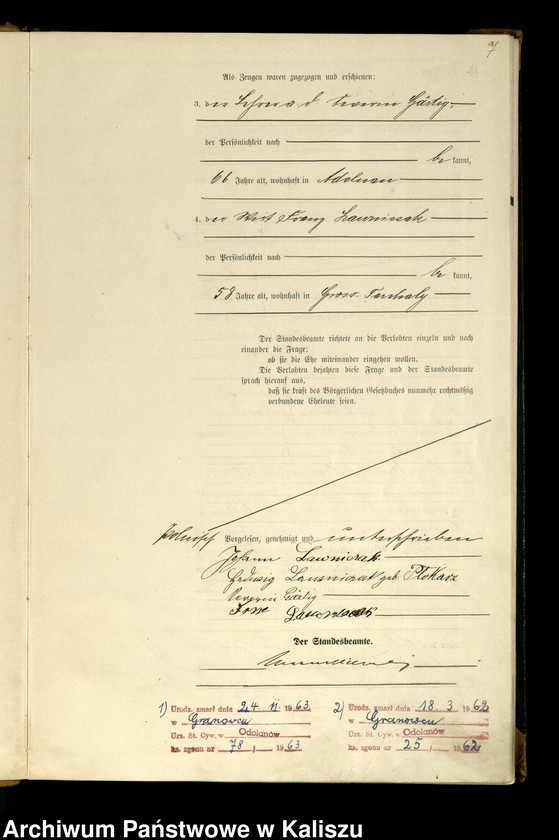 Als Zeugen waren zugezogen und erschienen:
3. der Lehrer a. d. Severin Gärtig
der Persönlichkeit nach
be kannt,
66 Jahre alt, wohnhaft in Adelnau
4. der Wirt Franz Lawniczak
der Persönlichkeit nach
be kannt,
58 Jahre alt, wohnhaft in Gross-Tarchaly
Der Standesbeamte richtete an die Verlobten einzeln und nach
einander die Frage:
ob sie die Ehe miteinander eingehen wollen.
Die Verlobten bejahten diese Frage und der Standesbeamte
sprach hierauf aus,
daß sie kraft des Bürgerlichen Gesetzbuches nunmehr rechtmäßig
verbundene Eheleute seien.
polnisch Vorgelesen, genehmigt und unterschrieben
Johann Lawniczak
Hedwig Lawniczak geb. Piekarz
Severin Gärtig
Der Standesbeamte.
1) Urodz. zmarł dnia 24 11 1963
w Granowcu
Urz. St. Cyw. w Odolanów
ks. zgonu nr 78 / 1963
2) Urodz. zmarł dnia 18. 3 1962
w Granowcu
Urz. St. Cyw. w Odolanów
ks. zgonu nr 25 / 1962
Archiwum Państwowe w Kaliszu